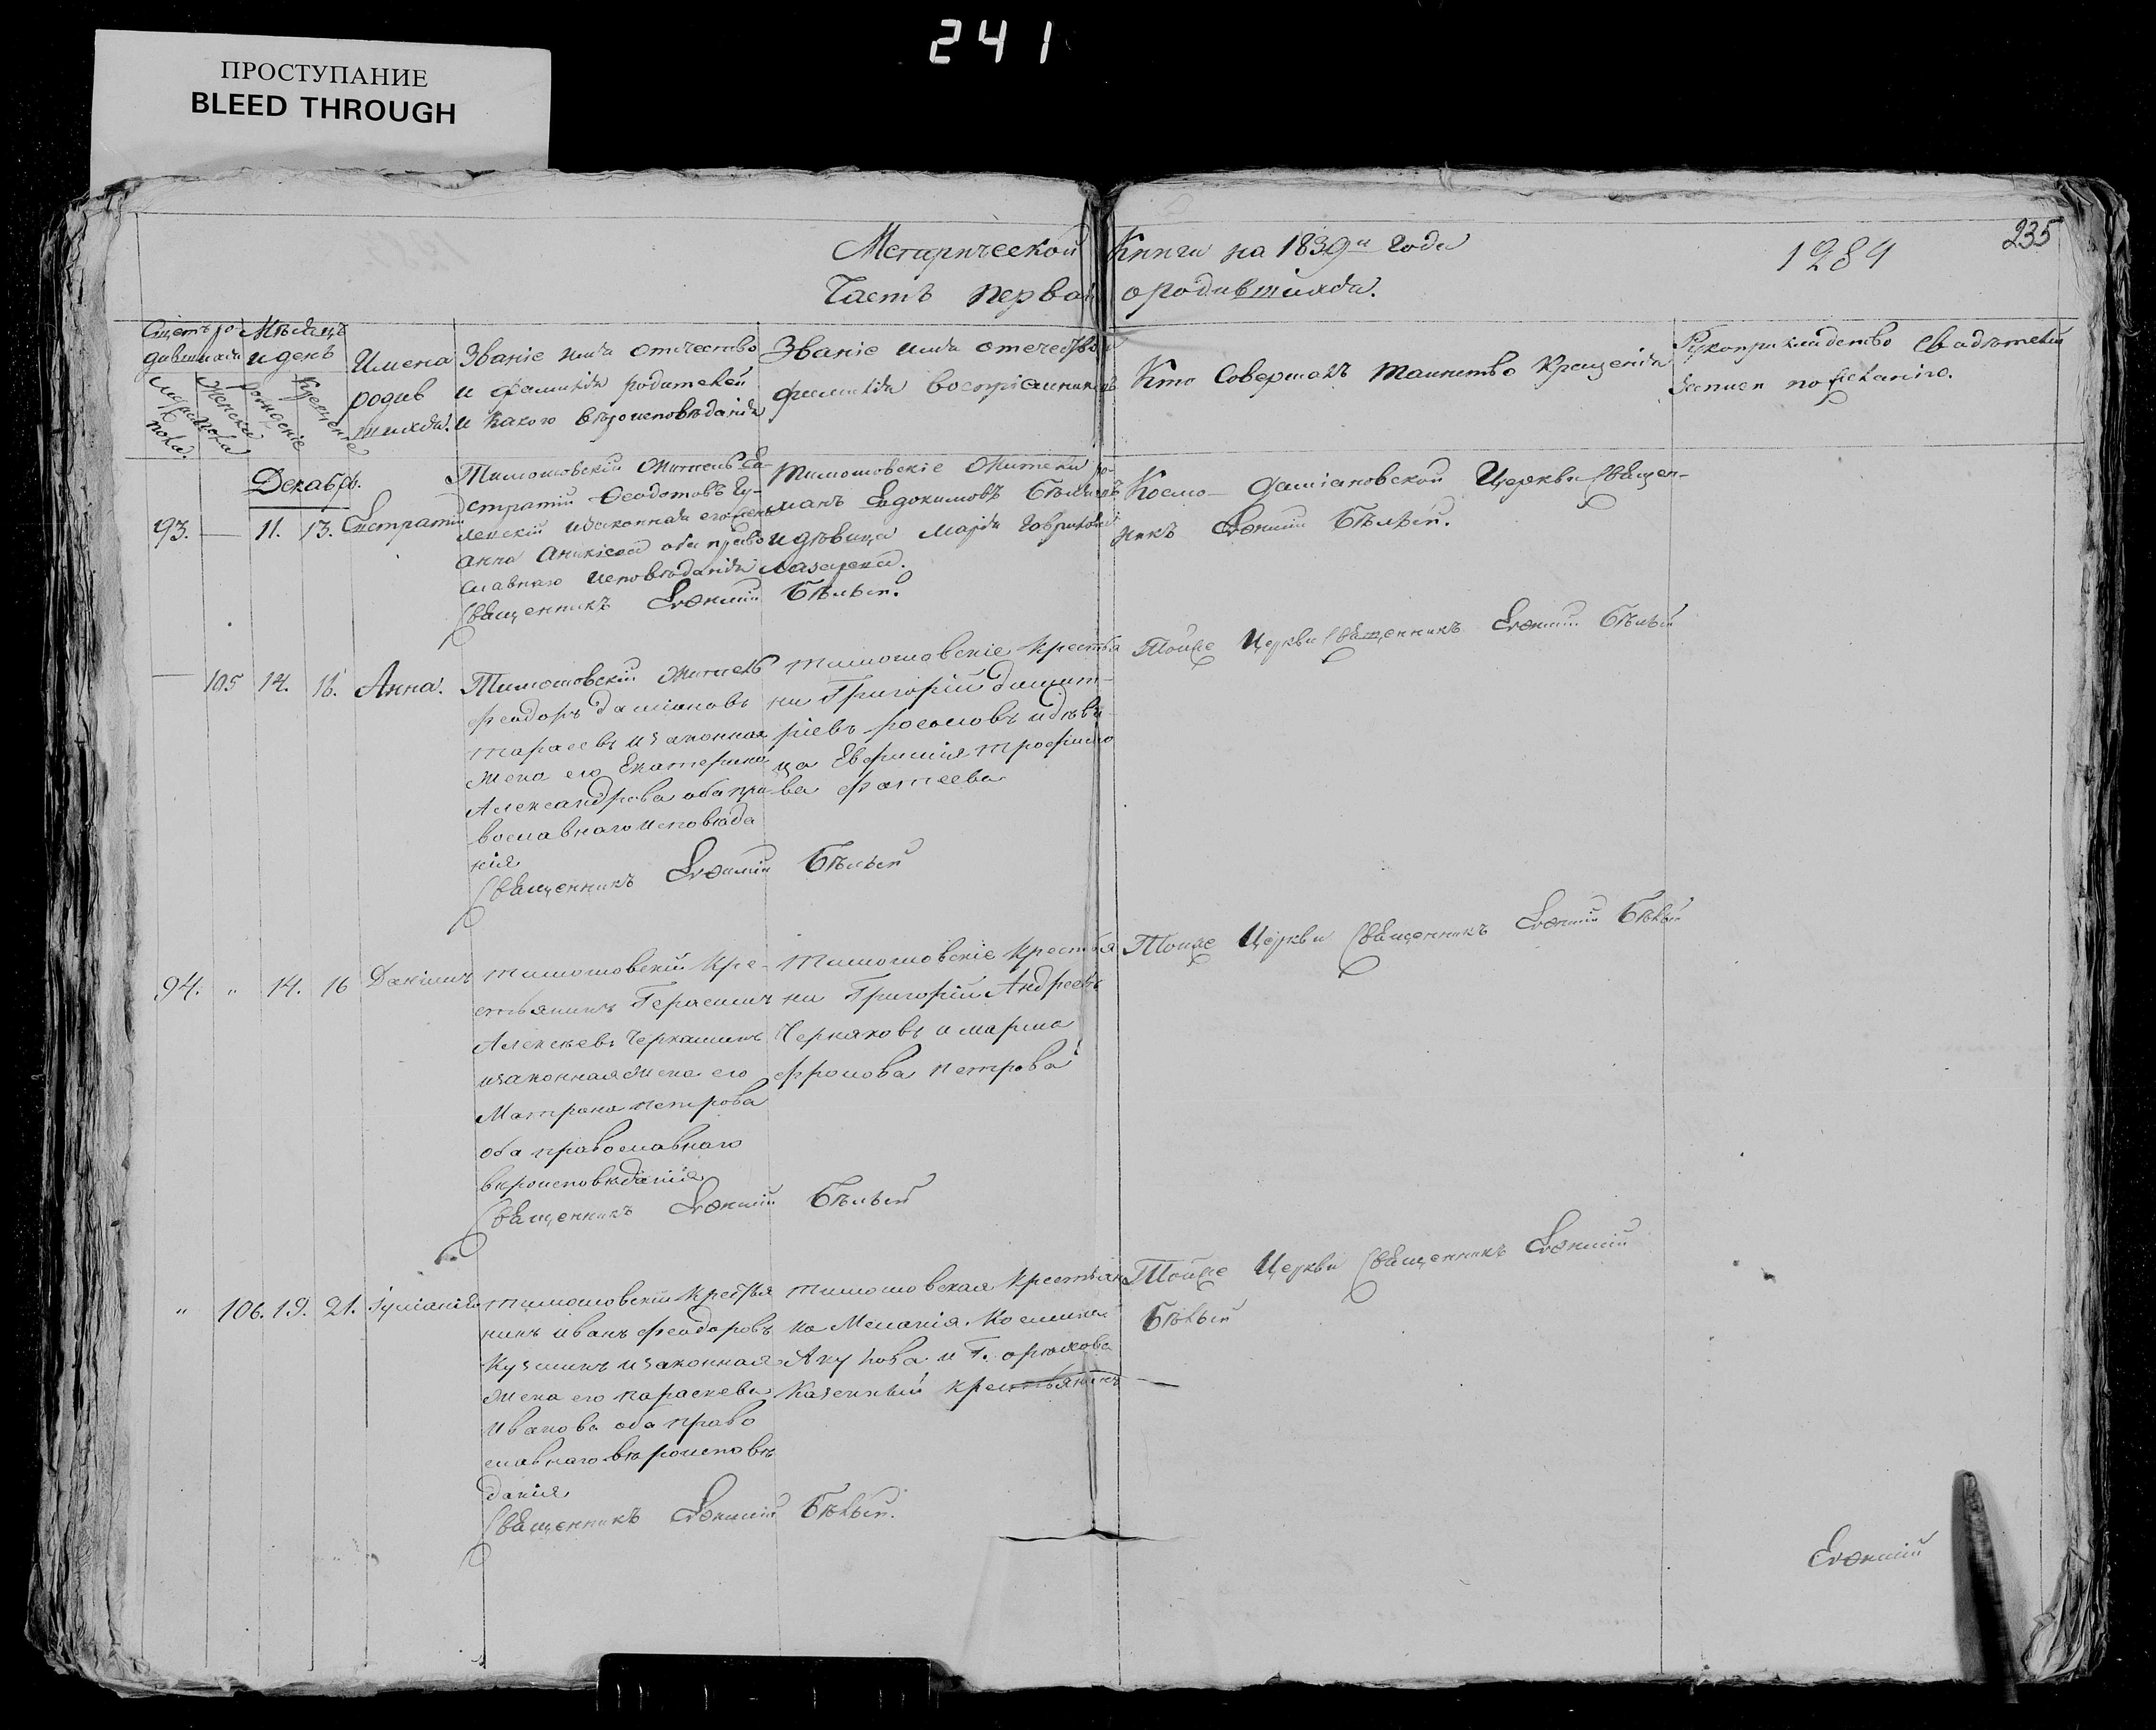 241
ПРОСТУПАНИЕ
BLEED THROUGH
235
Метрической Книги на 1839й года
1284
Часть первая о родившихся.
Щетъ ро-
дившихся
Мужеска
пола.
Женска
пола
Мѣсяцъ
и день
Рожденіе
Крещеніе
Имена
родив
шихся.
Званіе имя отчество
и фамилія родителей
и какого вѣроисповѣданія
Званіе имя отечество и
фамилія воспріемниковъ
Кто Совершалъ таинство Крещенія
Рукоприкладство свидѣтелей
записи по желанію.
Декабрь.
93. — 11. 13. Евстратій
Тимошовскій житель Ев-
стратій Феодотовъ
изаконная его жена
Анна оба право
славнаго исповѣданія
Священникъ Евѳимій Бѣлый.
Тимошовскіе жители Ро-
манъ Евдокимовъ
и дѣвица Марія Гаврилова
Лазарева.
Космо-Даміановской Церкви Священ-
никъ Евѳимій Бѣлый.
— 105 14. 16. Анна.
Тимошовскій житель
Феодоръ Даміановъ
Тарасевъ изаконная
жена его Екатерина
Александрова оба пра
вославнаго исповѣда
нія
Священникъ Евѳимій Бѣлый
Тимошовскіе крестья
не Григорій Димит-
ріевъ и дѣви
ца Евфимія Трофимо
ва Фатеева
Тойже Церкви Священникъ Евѳимій Бѣлый
94. „ 14. 16 Даніилъ
Тимошовскій кре-
стьянинъ Герасимъ
Алексѣевъ Черкашинъ
изаконная жена его
Матрона Петрова
оба православнаго
вѣроисповѣданія
Священникъ Евѳимій Бѣлый
Тимошовскіе крестья
не Григорій Андреевъ
Черняковъ и Марѳа
Фролова Петрова
Тойже Церкви Священникъ Евѳимій Бѣлый
„ 106. 19. 21. Іуліанія
Тимошовскій крестья
нинъ Иванъ Феодоровъ
Кузминъ изаконная
жена его Параскева
Иванова оба право
славнаго вѣроисповѣ
данія
Священникъ Евѳимій Бѣлый.
Тимошовская крестьян
ка Меланія Космина
казенный крестьянинъ
Тойже Церкви Священникъ Евѳимій
Бѣлый
Евѳимій